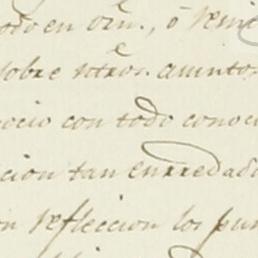 todo en orn., ó reint
sobre ntros. asuntos
ocio con todo conoci
cion tan enrredado
n refleccion los pun